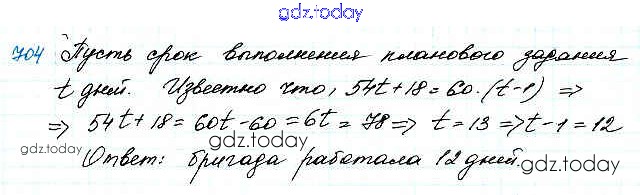 gdz.today
704 Пусть срок выполнения планового задания
t дней. Известно что, 54t+18=60·(t-1) =>
=> 54t+18=60t-60=6t=78=> t=13=>t-1=12
gdz.today gdz.today
Ответ: бригада работала 12 дней. gdz.today